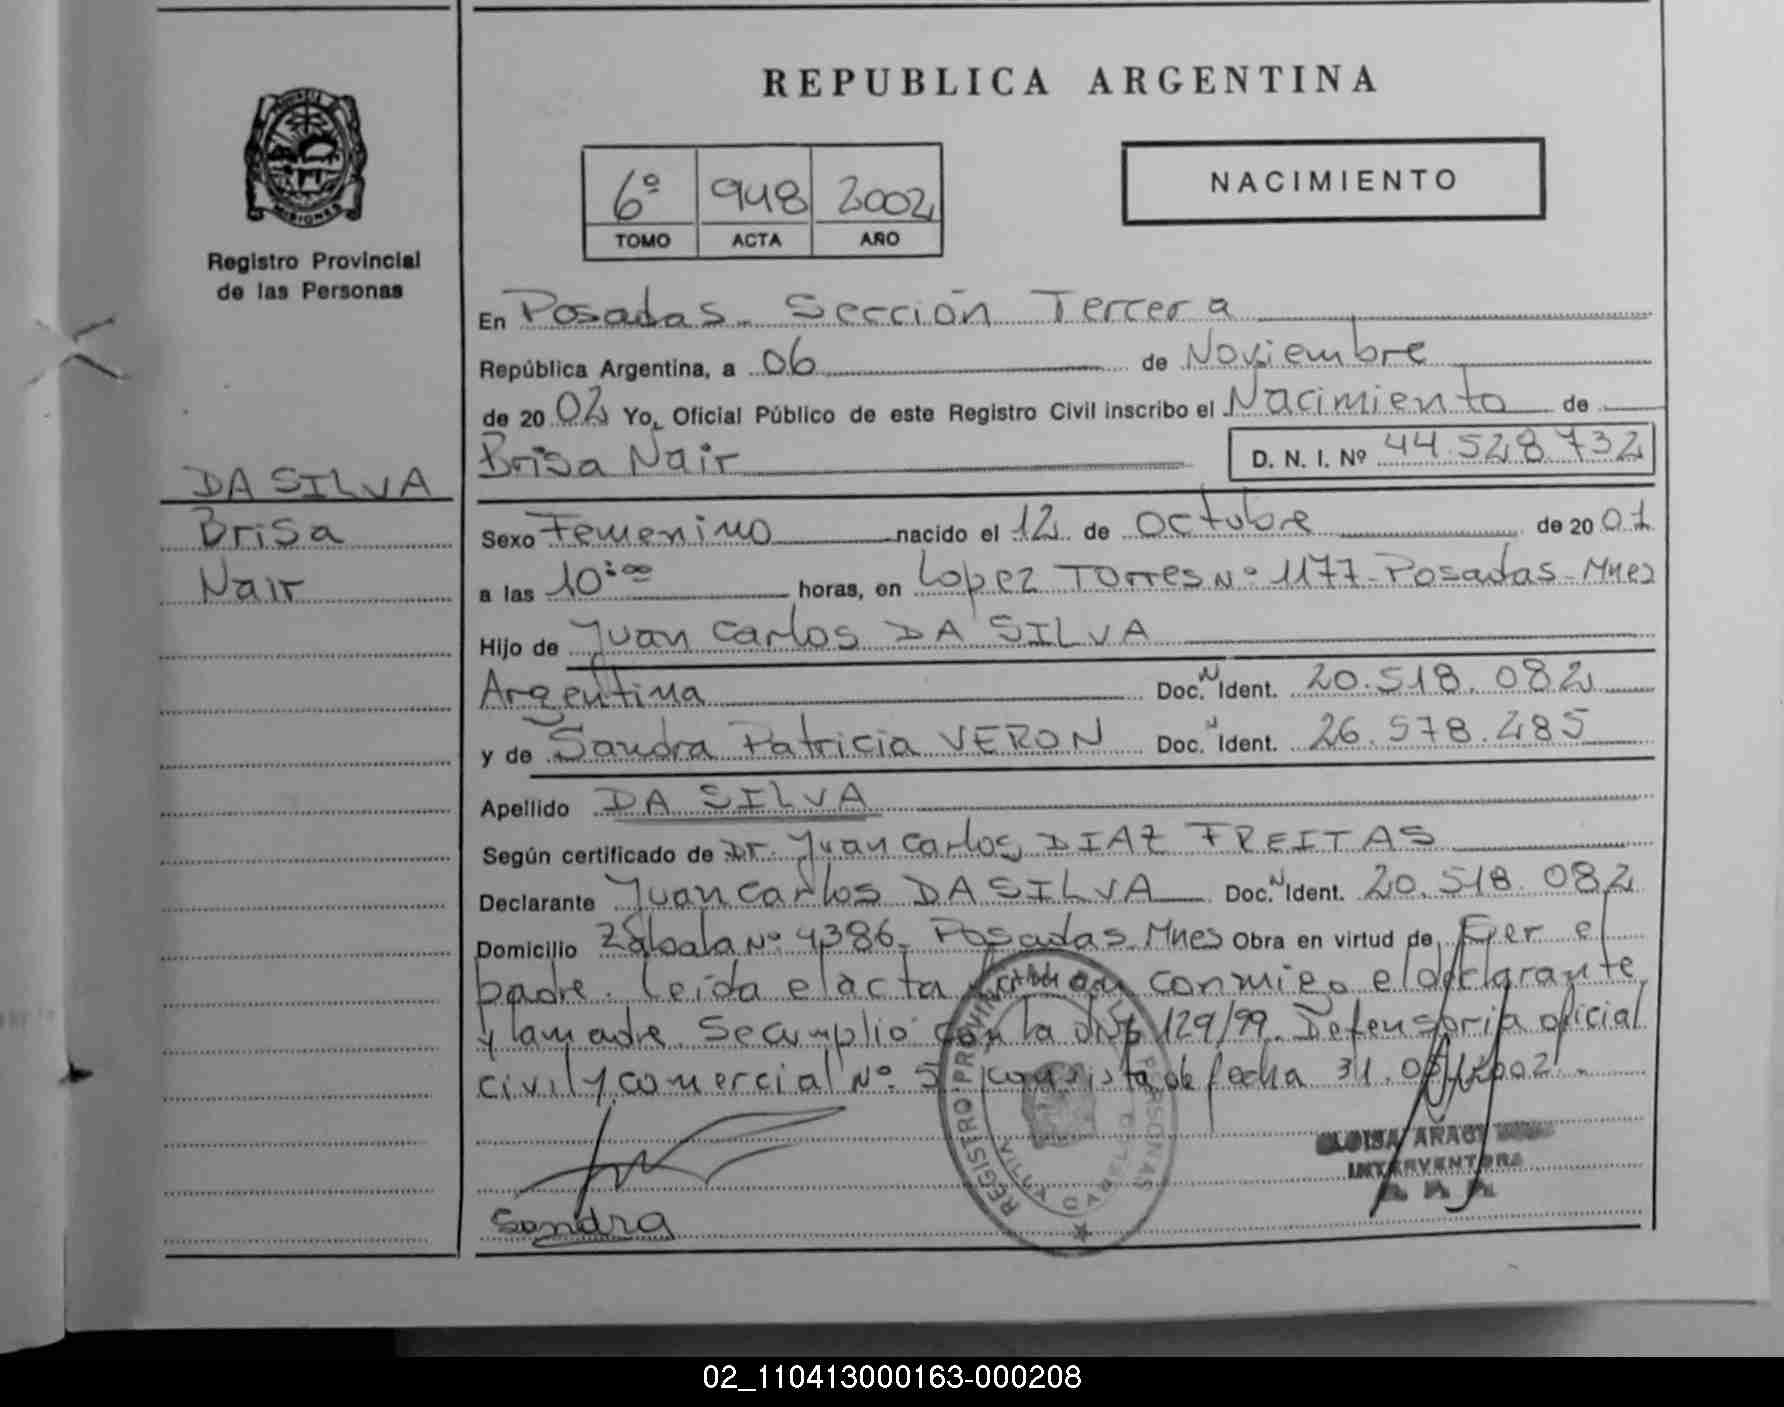 REPUBLICA ARGENTINA
PROVINCIA DE
MISIONES
Registro Provincial
de las Personas
6º 948 2002
TOMO ACTA AÑO
NACIMIENTO
En Posadas - Sección Tercera
República Argentina, a 06 de Noviembre
de 2002 Yo, Oficial Público de este Registro Civil inscribo el Nacimiento de
Brisa Nair D. N. I. Nº 44.528.732
DA SILVA
Brisa
Nair
Sexo Femenino nacido el 12 de octubre de 2001
a las 10:00 horas, en Lopez Torres Nº 1177 - Posadas - Mnes
Hijo de Juan Carlos DA SILVA
Argentina Doc. N Ident. 20.518.082
y de Sandra Patricia VERON Doc. N Ident. 26.578.285
Apellido DA SILVA
Según certificado de Dr. Juan Carlos DIAZ FREITAS
Declarante Juan Carlos DA SILVA Doc. N Ident. 20.518.082
Domicilio Zabala Nº 4386 - Posadas Mnes Obra en virtud de Ser el
padre. Leída el acta conmigo el declarante
y la madre. Se cumplio con la disp 129/99. Defensoria oficial
civil y comercial Nº 5 de fecha 31. 2002.
Sandra
REGISTRO PROVINCIAL PERSONAS
INTERVENTORA
02_110413000163-000208